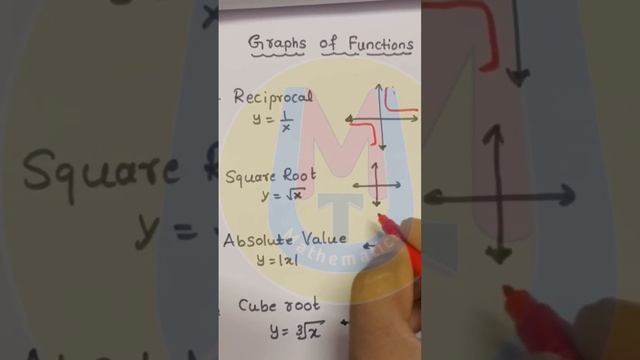 Graphs of Functions
Reciprocal
y = 1/x
Square Root
y = √x
Absolute Value
y = |x|
Cube root
y = ³√x
Mathemanc
MT